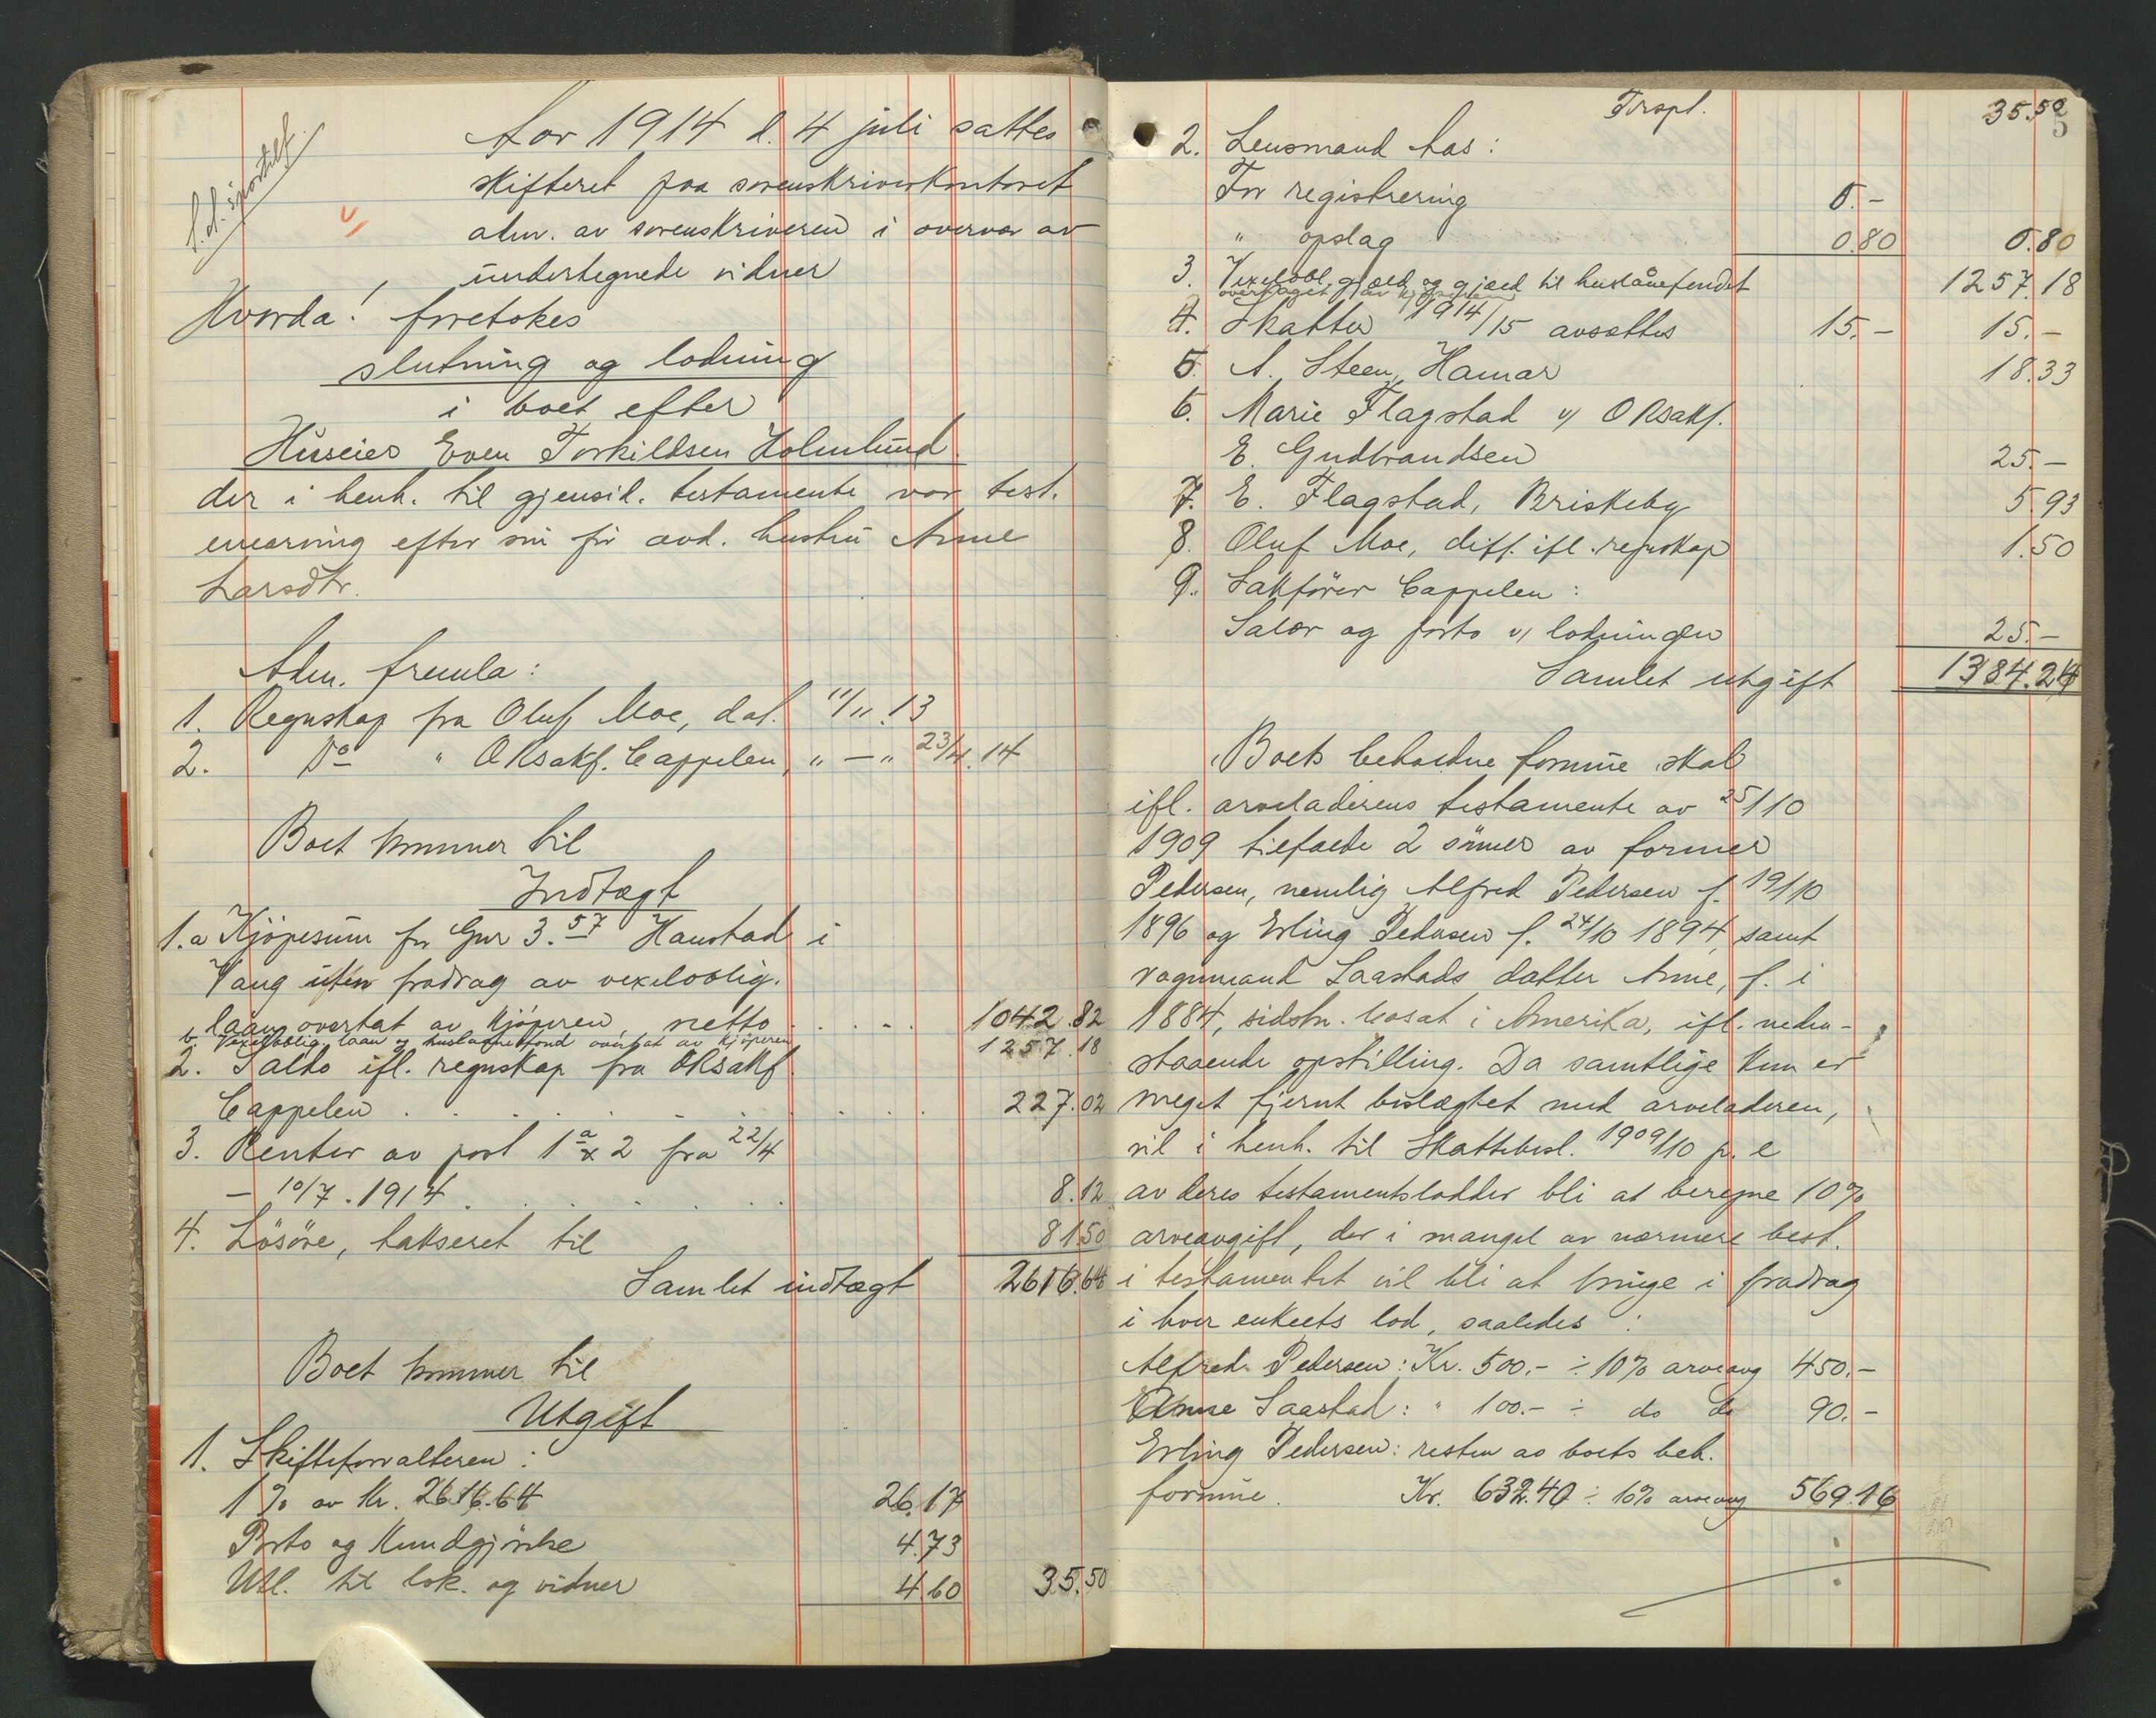 S.d. sportelf.
Aar 1914 d. 4 juli sattes
skifteret paa sorenskriverkontoret
adm. av sorenskriveren i overvær av
undertegnede vidner
Hvorda! foretokes
slutning og lodning
i boet efter
Huseier Even Torkildsen Holmlund.
der i henh. til gjensid. testamente var test.
enearving efter sin før avd. hustru Anne
Larsdtr.
Adm. fremla:
1. Regnskap fra Oluf Moe, dat. 11/11.13
2. Do " ORsakf. Cappelen, " — " 23/4.14
Boet kommer til
Indtægt
1.a Kjøpesum for Gnr 3.57 Hanstad i
Vang uten fradrag av vexeloblig.
laan overtat av kjøperen, netto . . . . 1042.82
b. Vexeloblig. laan og huslaanefond overtat av kjøperen 1257.18
2. Saldo ifl. regnskap fra ORsakf.
Cappelen . . . . . . . . . . 227.02
3. Renter av post 1a & 2 fra 22/4
— 10/7.1914 . . . . . . 8.12
4. Løsøre, takseret til 81.50
Samlet indtægt 2616.64
Boet kommer til
Utgift
1. Skifteforvalteren:
1% av Kr. 2616.64 26.17
Porto og kundgjørelse 4.73
Utl. til lok. og vidner 4.60 35.50
Trspt. 35.50
5
2. Lensmand has:
For registrering 0.-
" opslag 0.80 0.80
3. Vexelobl. gjæld og gjæld til huslånefondet 1257.18
overtaget av kjøperen
4. Skatter 1914/15 avsættes 15.- 15.-
5. A. Steen, Hamar 18.33
6. Marie Flagstad v/ ORsakf.
E. Gudbrandsen 25.-
7. E. Flagstad, Briskeby 5.93
8. Oluf Moe, diff. ifl. regnskap 1.50
9. Sakfører Cappelen:
Salær og porto v/ lodningen 25.-
Samlet utgift 1384.24
Boets beholdne formue skal
ifl. arveladerens testamente av 25/10
1909 tilfalde 2 sønner av
Pedersen, nemlig Alfred Pedersen f. 19/10
1896 og Erling Pedersen f. 24/10 1894, samt
vognmand Saastads datter Anne, f. i
1884, sidstn. bosat i Amerika, ifl. neden-
staaende opstilling. Da samtlige kun er
meget fjernt beslægtet med arveladeren,
vil i henh. til Skattebesl. 1909/10 p. e
av deres testamentslodder bli at beregne 10%
arveavgift, der i mangel av nærmere best.
i testamentet vil bli at bringe i fradrag
i hver enkelts lod, saaledes:
Alfred Pedersen: Kr. 500.- ÷ 10% arveavg 450.-
Anne Saastad: " 100.- ÷ do do 90.-
Erling Pedersen: resten av boets beh.
formue. Kr. 632.40 ÷ 10% arveavg 569.16